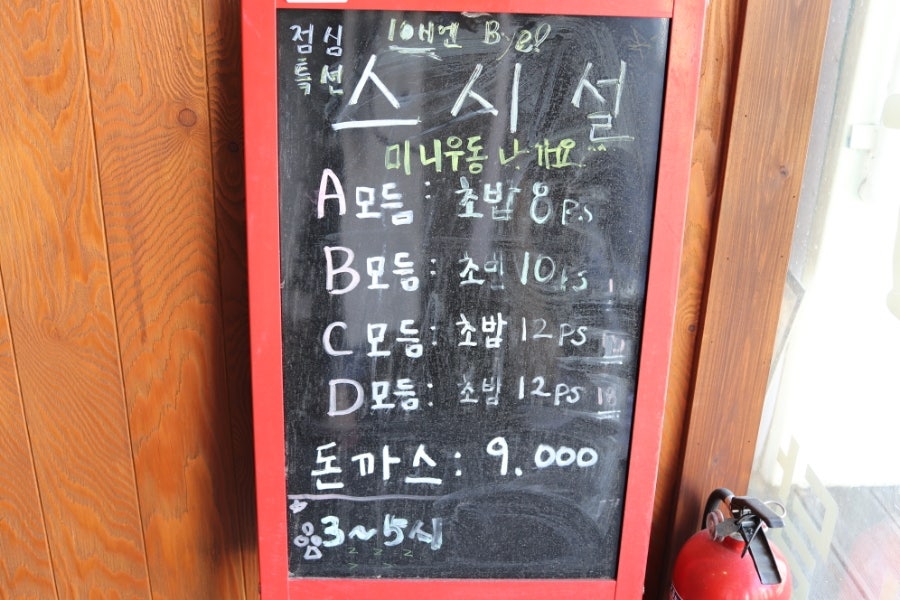 점심
특선
스시설
미니우동 나가요
A모듬: 초밥 8ps
B모듬: 초밥 10ps
C모듬: 초밥 12ps
D모듬: 초밥 12ps 18
돈까스: 9.000
3~5시